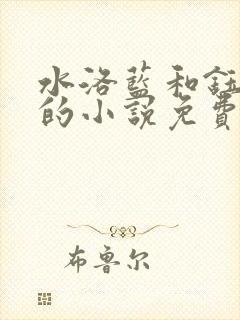 水洛藍和鈺
的小說免費
布鲁尔